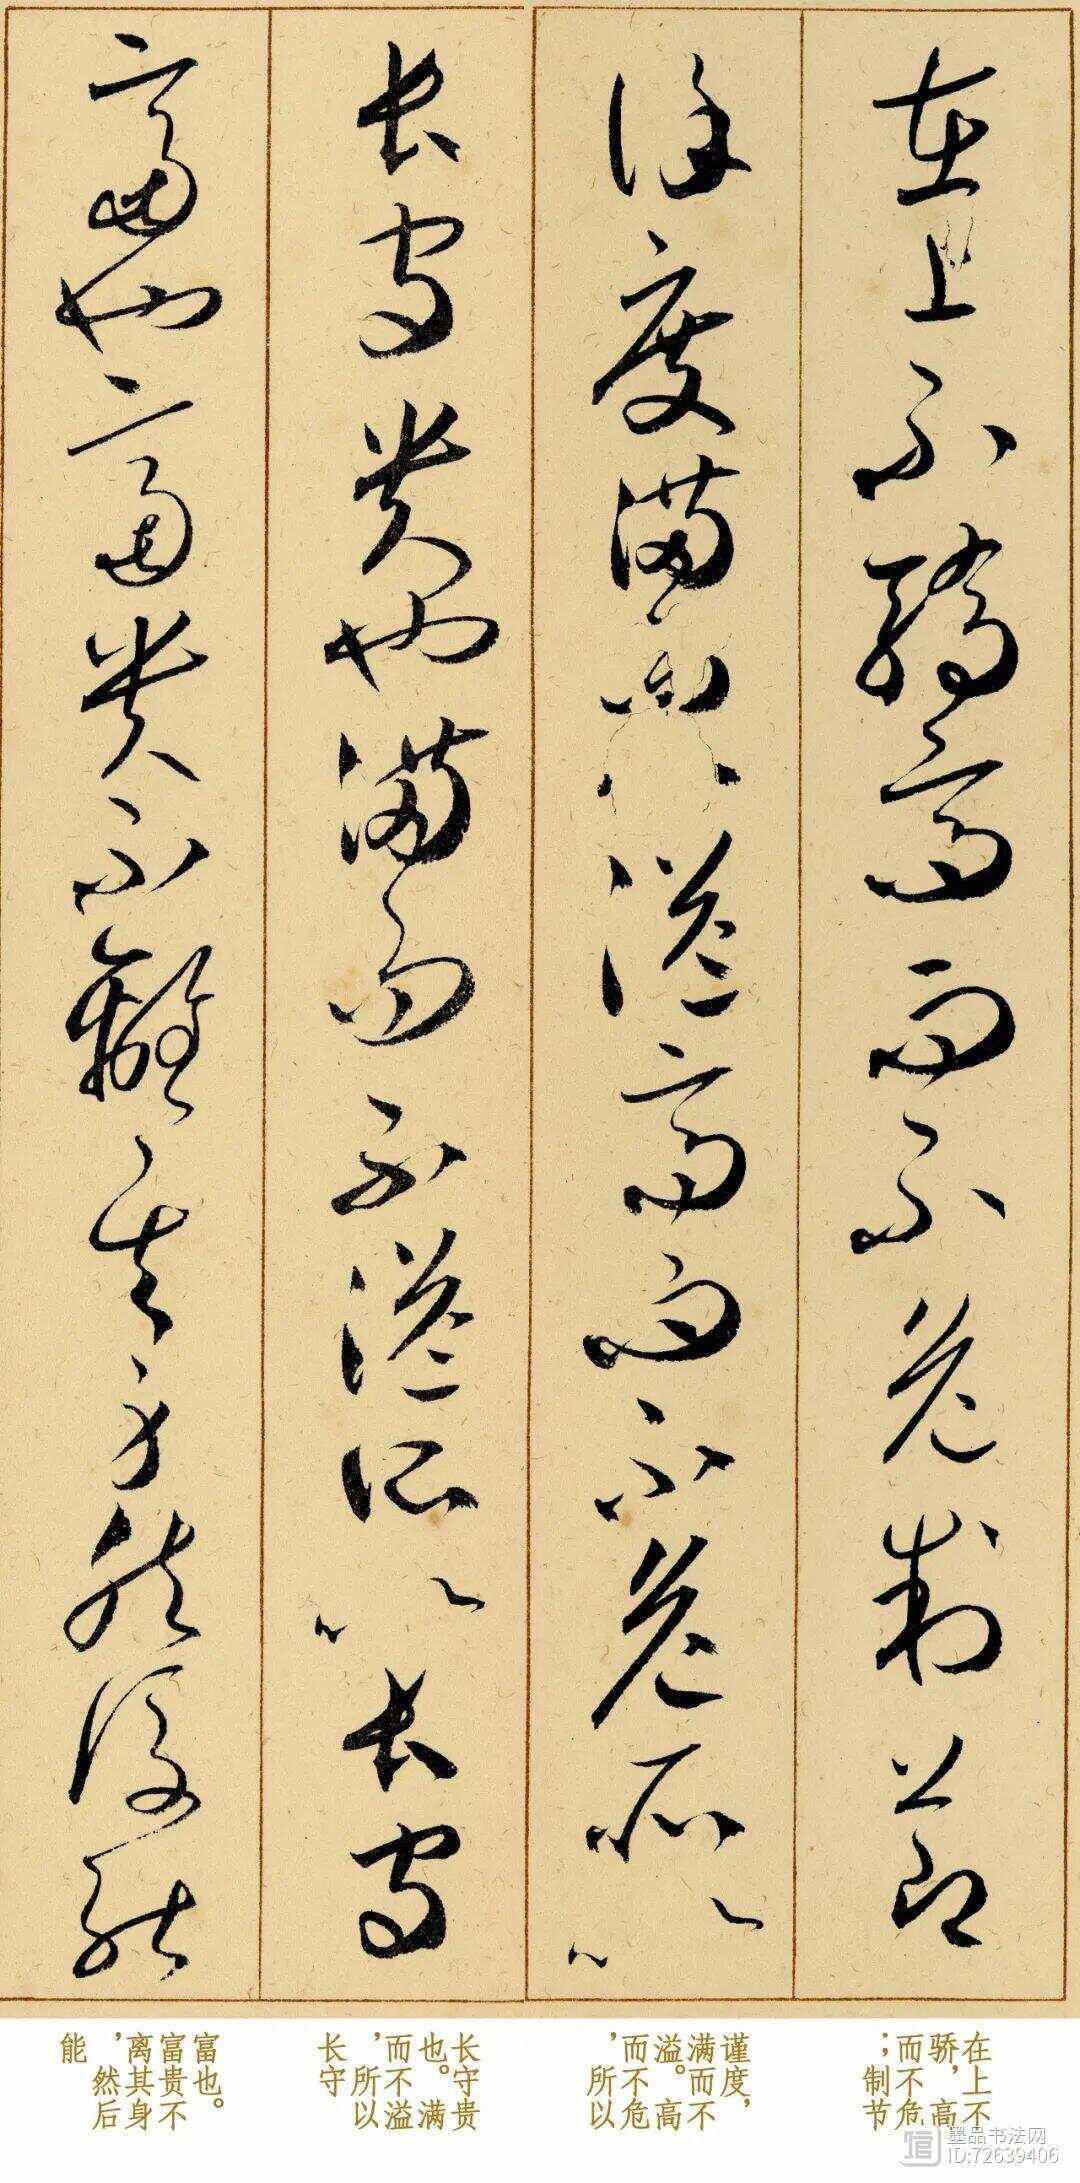 在上不驕高而不危制節
謹度滿而不溢高而不危所以
長守貴也滿而不溢所以長守
富也富貴不離其身然後能
在上不
骄，高
而不危
；制节
谨度，
满而不
溢。高
而不危
，所以
长守贵
也。满
而不溢
，所以
长守
富也。
富贵不
离其身
，然后
能
墨品书法网
ID:72639406